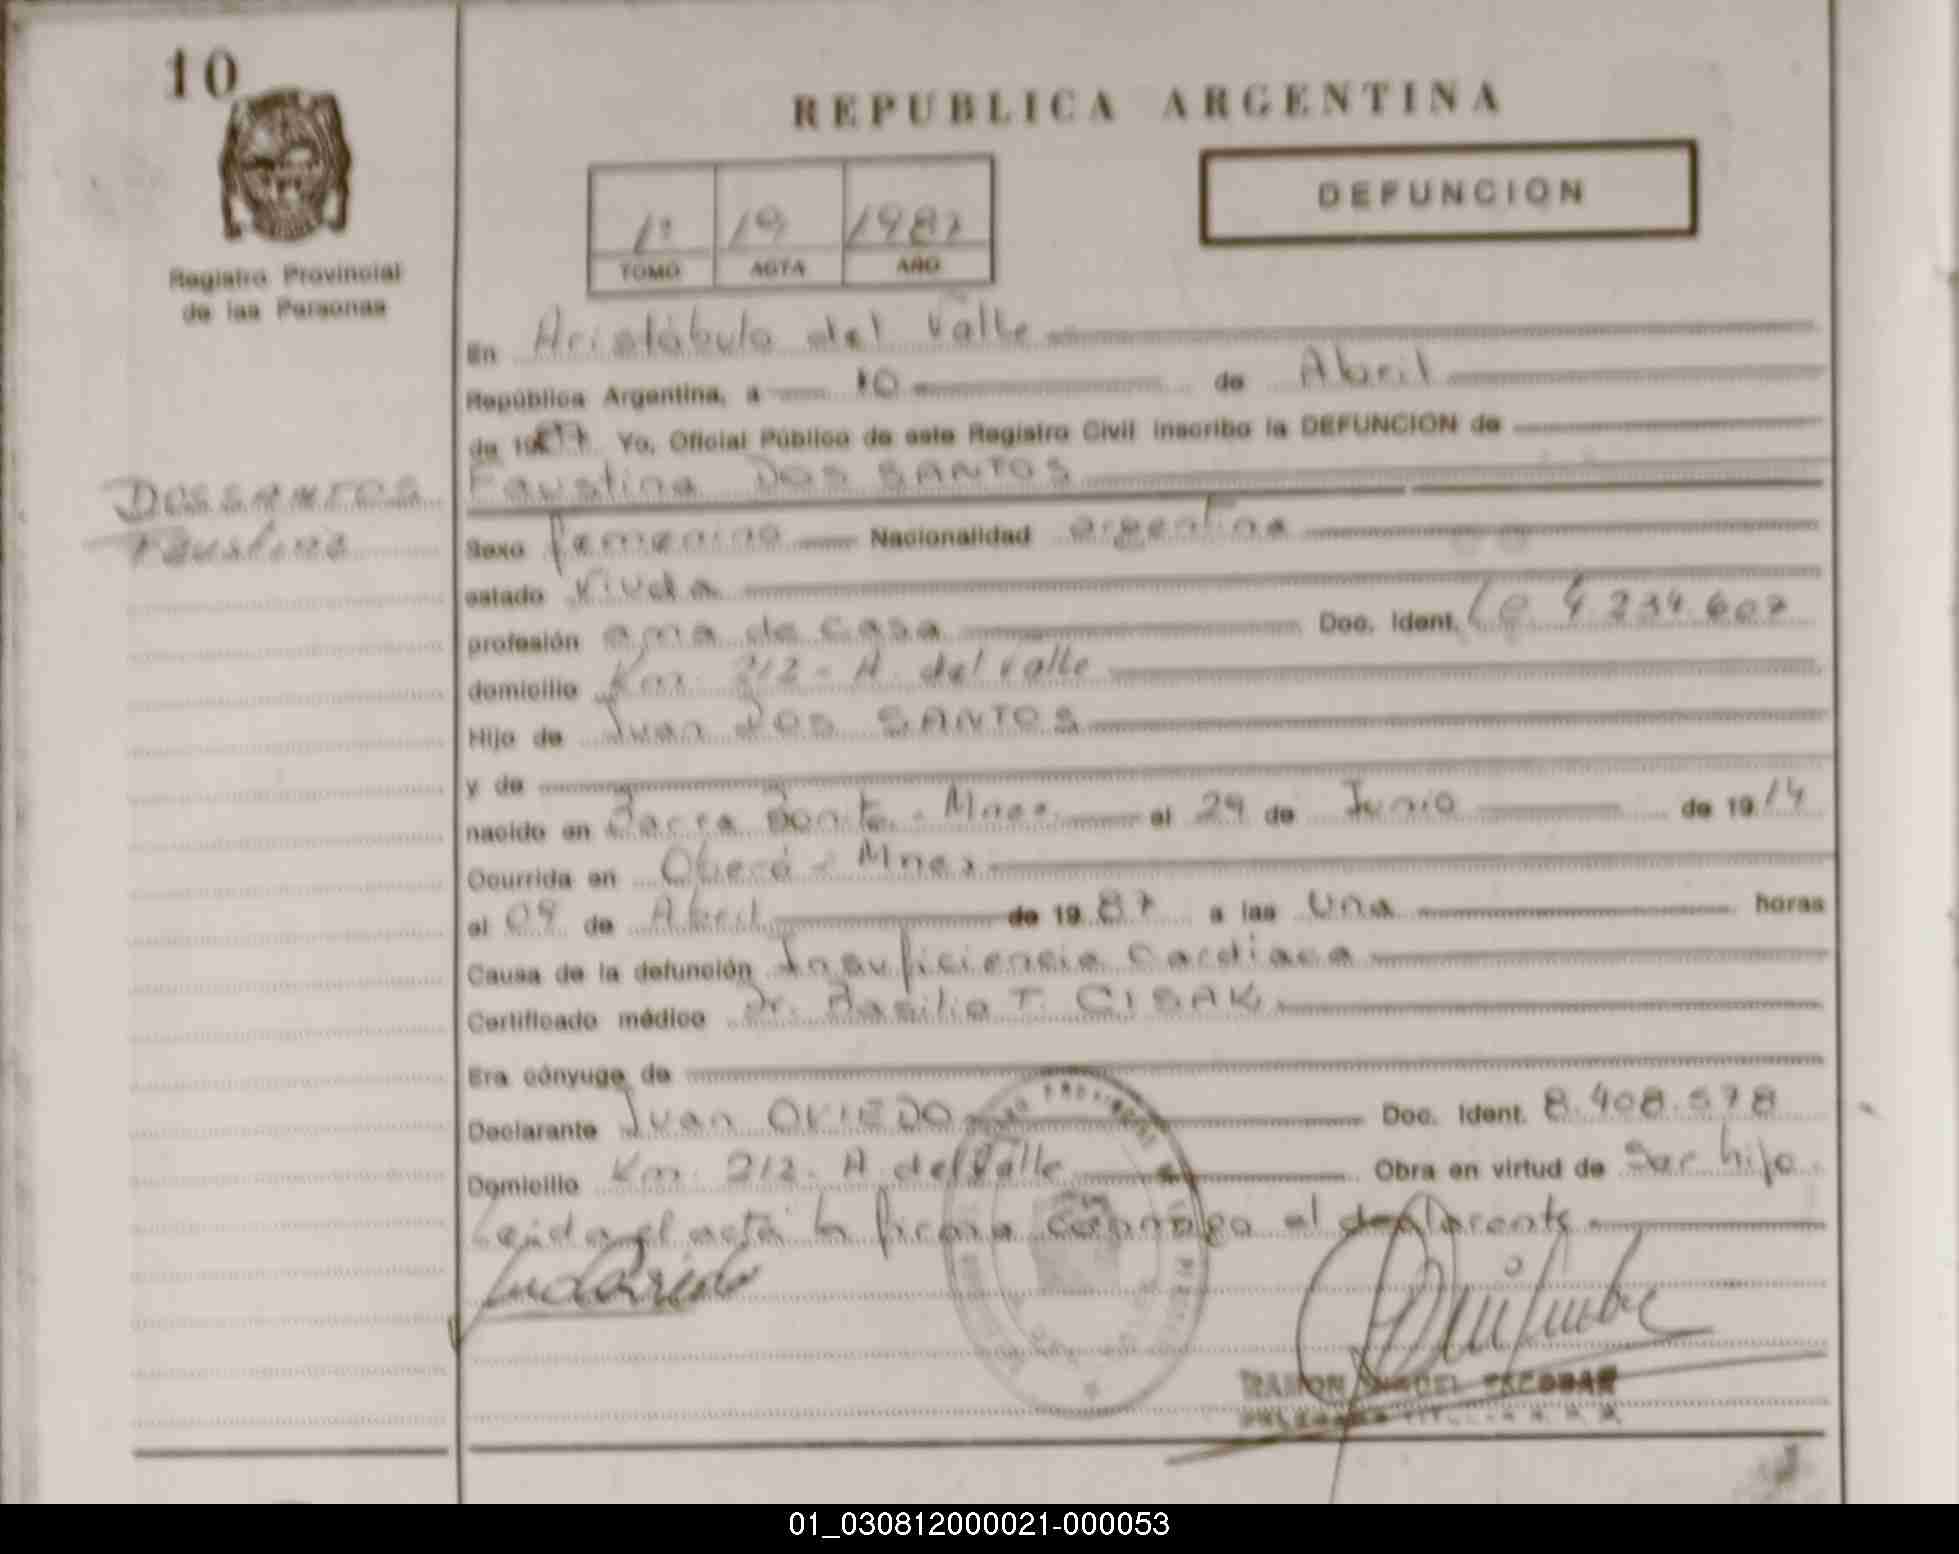 10
REPUBLICA ARGENTINA
DEFUNCION
1º 19 1987
TOMO ACTA AÑO
Registro Provincial
de las Personas
En Aristóbulo del Valle
República Argentina, a 10 de Abril
de 1987 Yo, Oficial Público de este Registro Civil inscribo la DEFUNCION de
Faustina DOS SANTOS
DOS SANTOS
Faustina
Sexo femenino Nacionalidad argentina
estado viuda
profesión ama de casa Doc. Ident. Lc 4.234.607
domicilio Km. 212 - A. del Valle
Hijo de Juan DOS SANTOS
y de
nacido en Barra Bonita - Mnes. el 29 de Junio de 1914
Ocurrida en Oberá - Mnes
el 09 de Abril de 1987 a las Una horas
Causa de la defunción Insuficiencia Cardiaca
Certificado médico Dr. Basilio T. CISAK
Era cónyuge de
Declarante Juan OVIEDO Doc. Ident. 8.408.578
Domicilio Km. 212 - A. del Valle Obra en virtud de Ser hijo
Leida el acta la firma conmigo el declarante
RAMON MIGUEL ESCOBAR
01_030812000021-000053